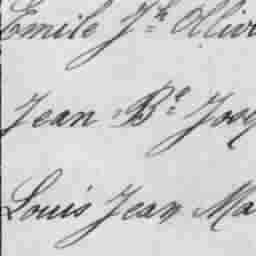 Emile Jh Olivi
Jean Bte Jos
Louis Jean Ma